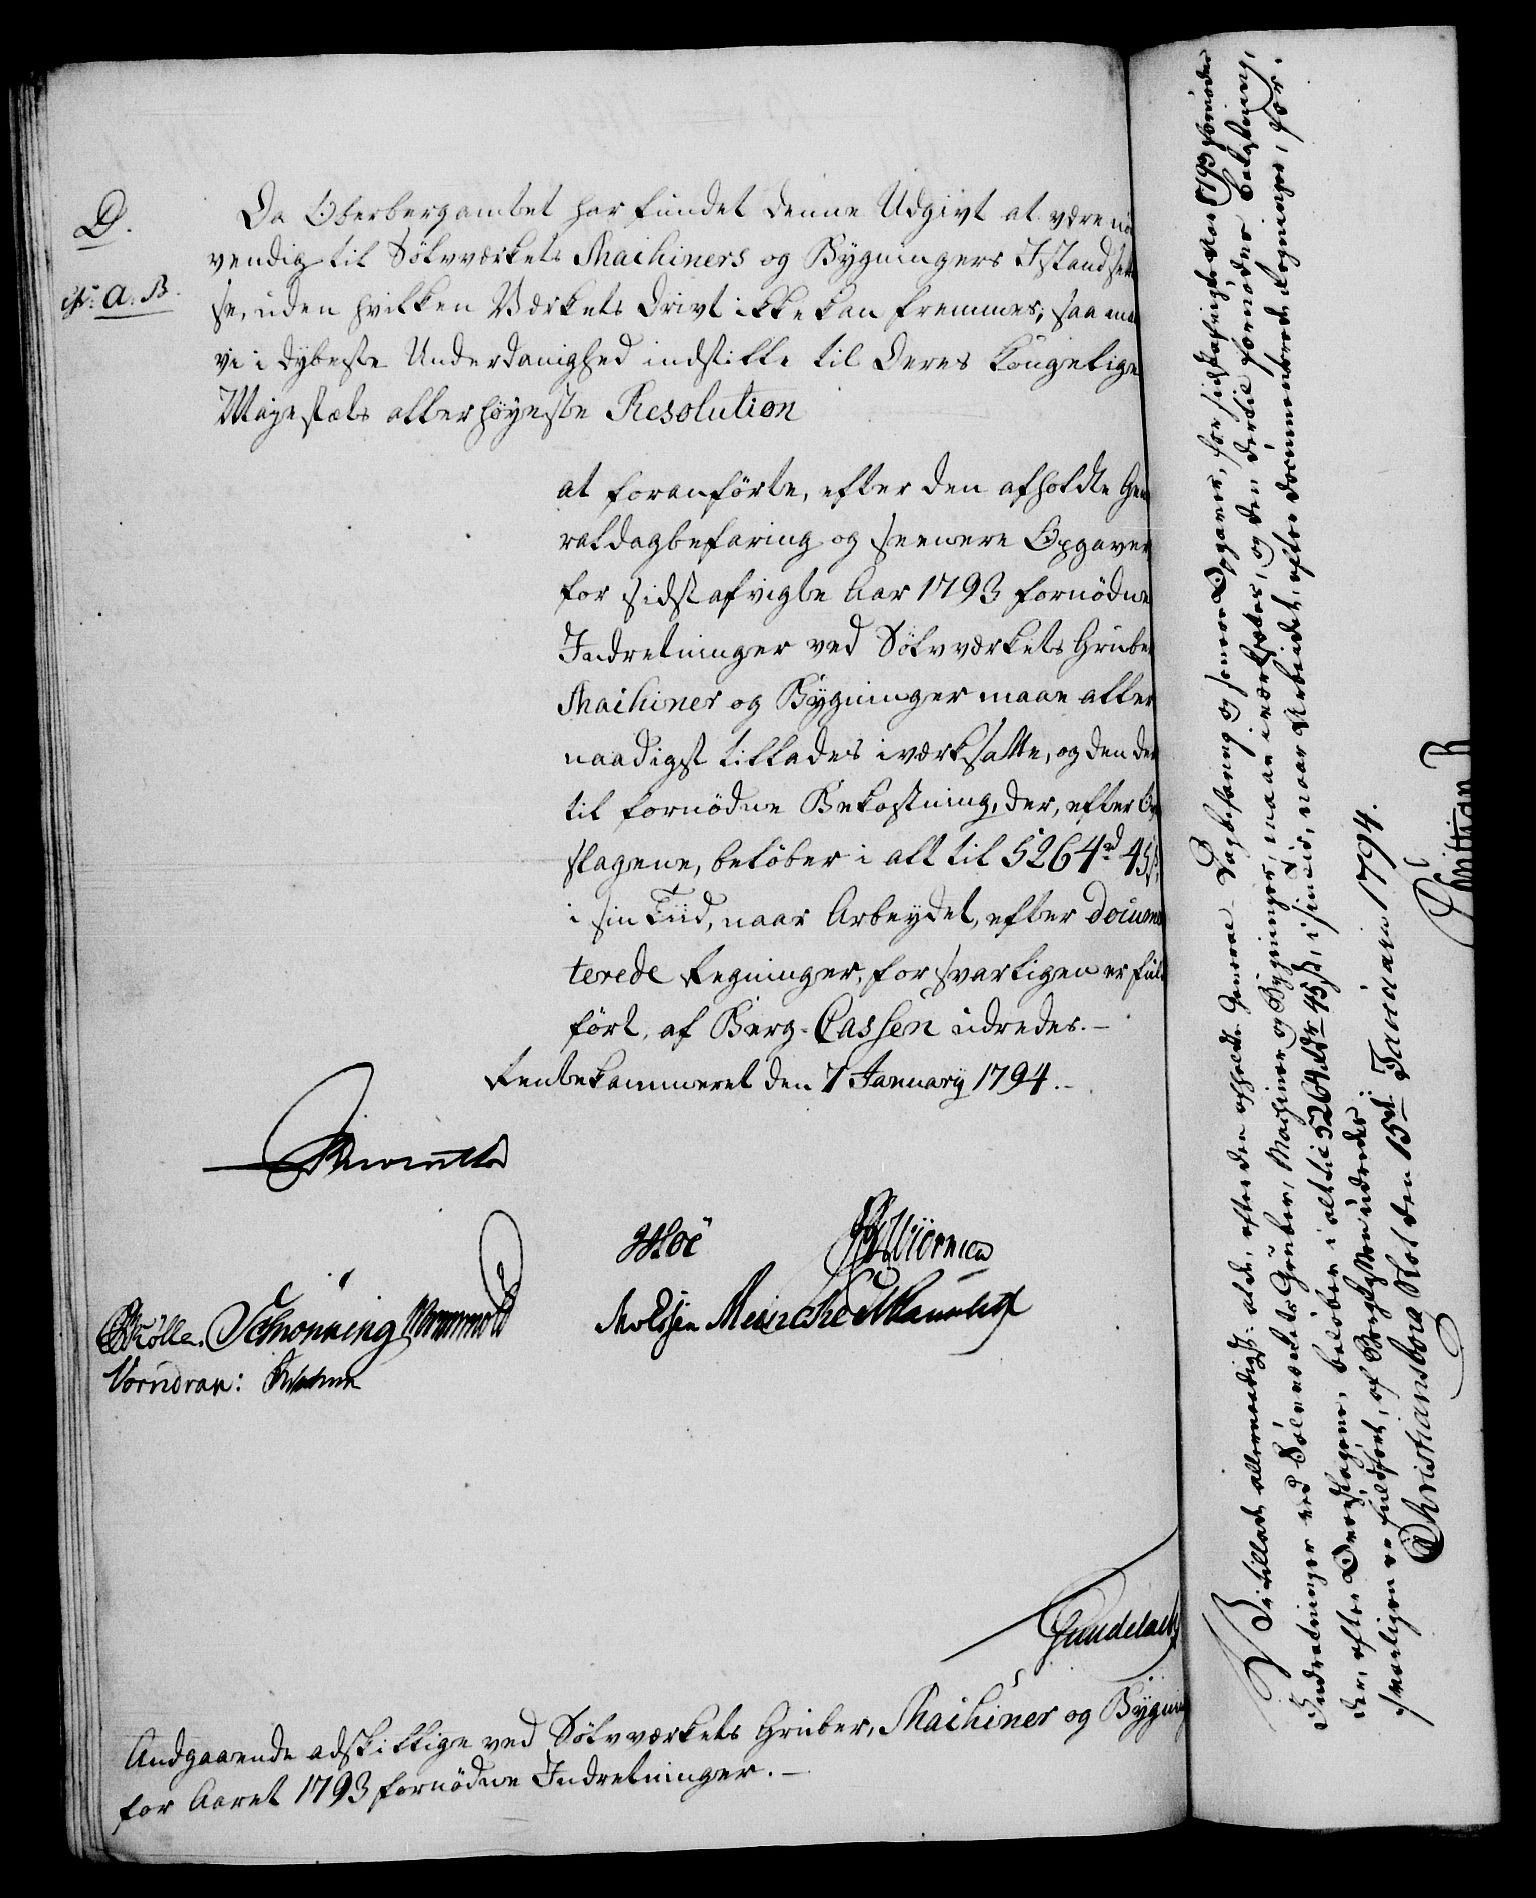 D.
Da Oberbergambtet har fundet denne Udgivt at være nö
vendig til Sölvværkets Machiners og Bygningers Istandset
se, uden hvilken Værkets Drivt ikke kan fremmes, saa maa
A. B.
vi i dybeste Underdanighed indstille til Deres Kongelige
Majestæts allerhöyeste Resolution
at foranförte, efter den afholdte Gene
raldagbefaring og seenere Opgaver
for sidstafvigte Aar 1793 fornödne
Indretninger ved Sölvværkets Gruber
Machiner og Bygninger maae aller
naadigst tillades iværksatte, og den der
til fornödne Bekostning, der, efter Ov
slagene, belöber i alt til 5264 rd 45 ß,
i sin Tiid, naar Arbeydet, efter docume
terede Regninger, forsvarligen er fuld
fört, af Berg-Cassen udredes.-
Rentekammeret den 7 January 1794.-
Hoë
Schönning Wormwold
Meinche
Vorndran:
Guldelach
Andgaaende adskillige ved Sölvværkets Gruber, Machiner og Bygning
for Aaret 1793 fornödne Indretninger.-
Vi tillade allernaadigst: at de, efter den afholdte General-Dagbefaring og senere Opgaver, for sidstafvigte Aar 1793 fornödne
Indretninger ved Sölvværkets Gruber, Machiner og Bygninger, maae iværksættes, og den dertil fornödne Bekostning,
der, efter Overslagene, belöber i alt til 5264 Rdr 45 ß, i sin Tid, naar Arbeidet, efter documenterede Regninger, for-
svarligen er fuldfört, af Bergkassen udredes.
Christiansborg Slot den 15de Januarii 1794.
Christian R